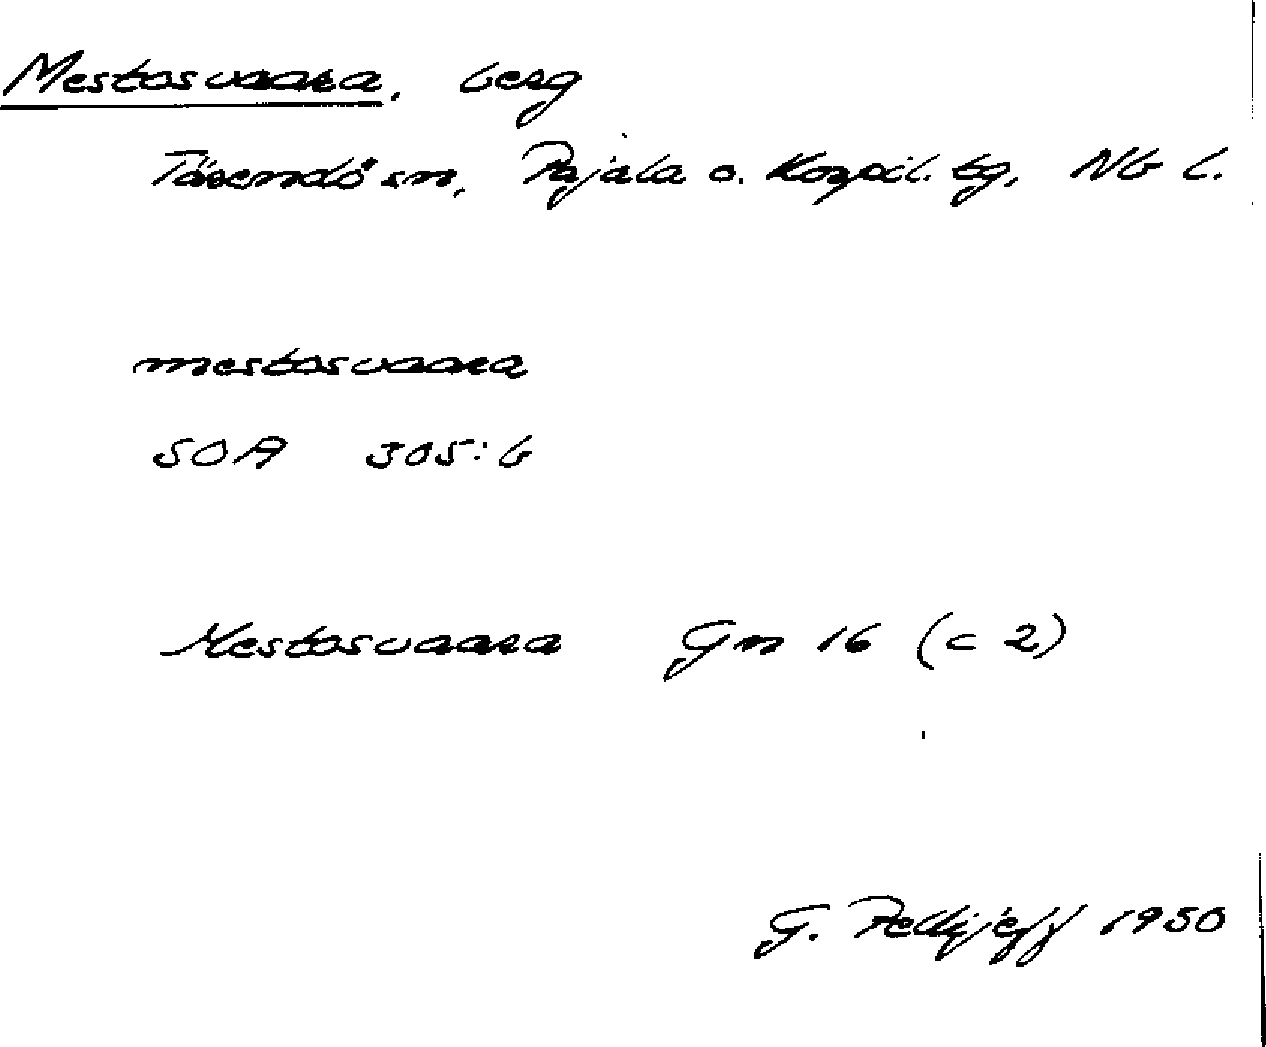 Mestosvaara, berg
Tärendö sn, Pajala o. Korpil. tg, Nb l.
mestosvaara
SOA 305:6
Mestosvaara Gm 16 (c 2)
G. Pellijeff 1950